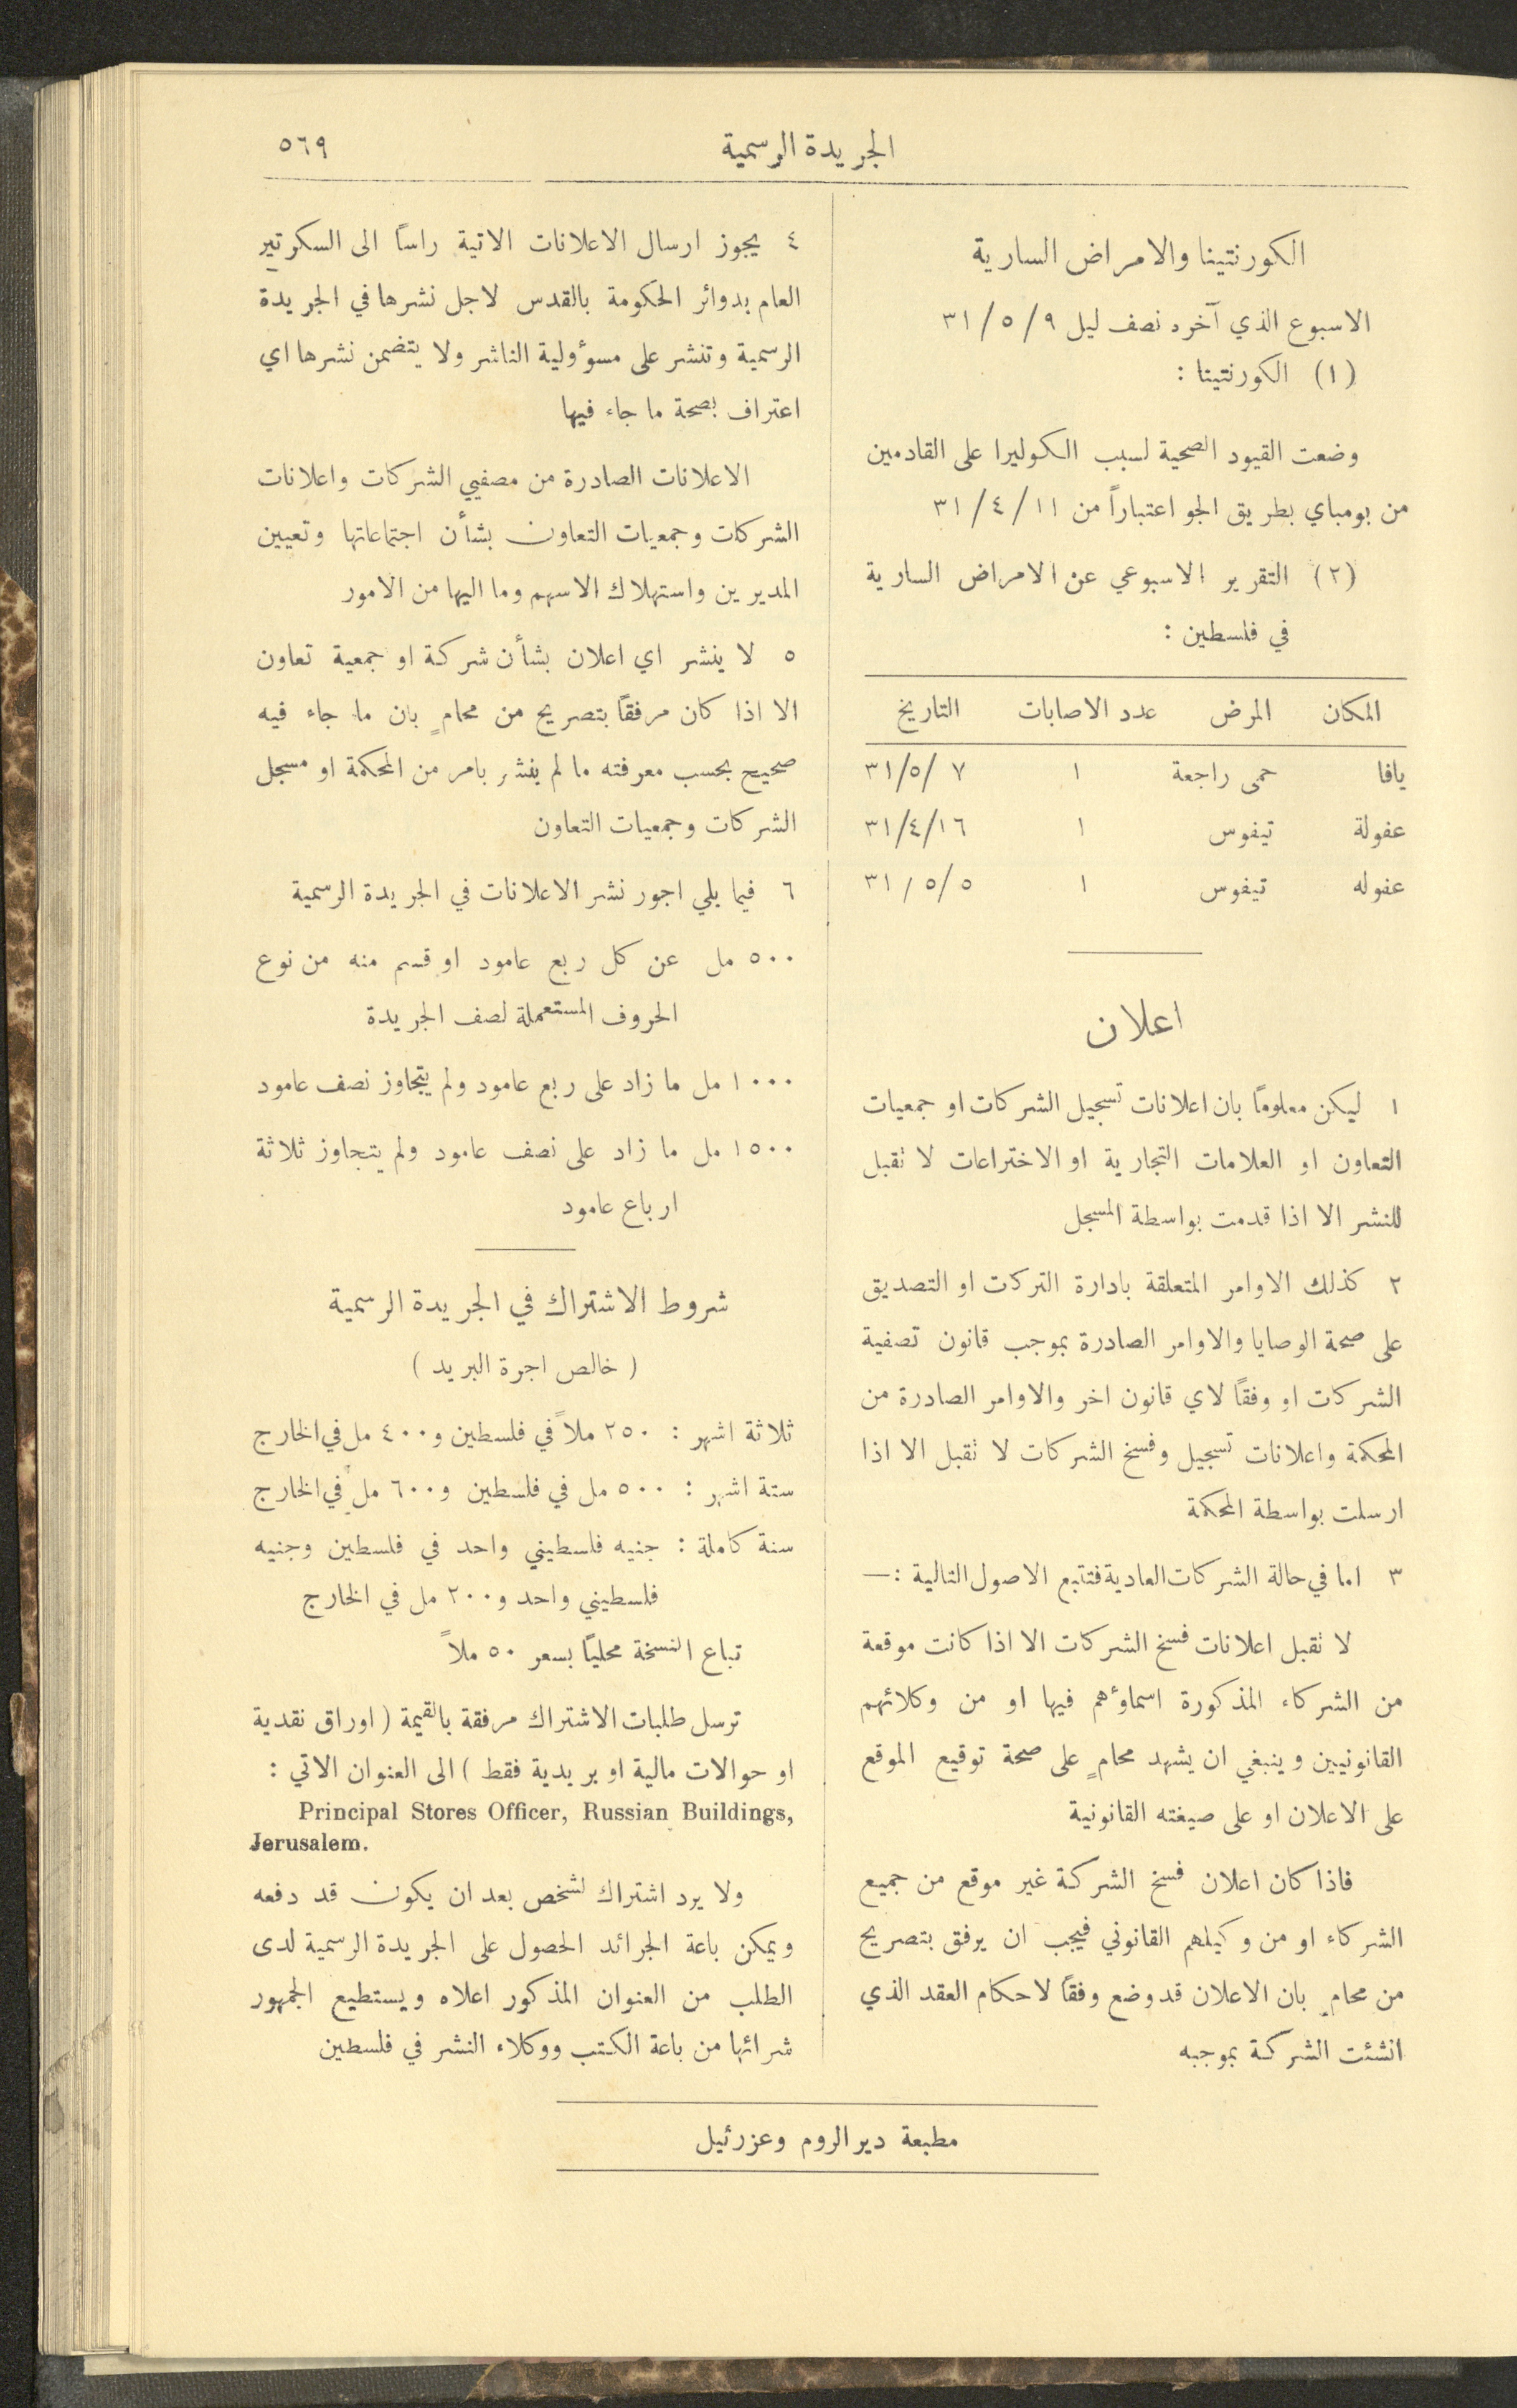 الجريدة الرسمية
٥٦٩
الكورنتينا والامراض السارية
الاسبوع الذي آخره نصف ليل ٩/٥/٣١
(١) الكورنتينا :
وضعت القيود الصحية لسبب الكوليرا على القادمين
من بومباي بطريق الجو اعتباراً من ١١/٤/٣١
(٢) التقرير الاسبوعي عن الامراض السارية
في فلسطين :
المكان المرض عدد الاصابات التاريخ
يافا حمى راجعة ١ ٧/٥/٣١
عفولة تيفوس ١ ١٦/٤/٣١
عفوله تيفوس ١ ٥/٥/٣١
اعلان
١ ليكن معلوماً بان اعلانات تسجيل الشركات او جمعيات
التعاون او العلامات التجارية او الاختراعات لا تقبل
للنشر الا اذا قدمت بواسطة المسجل
٢ كذلك الاوامر المتعلقة بادارة التركات او التصديق
على صحة الوصايا والاوامر الصادرة بموجب قانون تصفية
الشركات او وفقاً لاي قانون اخر والاوامر الصادرة من
المحكمة واعلانات تسجيل وفسخ الشركات لا تقبل الا اذا
ارسلت بواسطة المحكمة
٣ اما في حالة الشركات العادية فتتبع الاصول التالية :—
لا تقبل اعلانات فسخ الشركات الا اذا كانت موقعة
من الشركاء المذكورة اسماؤهم فيها او من وكلائهم
القانونيين وينبغي ان يشهد محامٍ على صحة توقيع الموقع
على الاعلان او على صيغته القانونية
فاذا كان اعلان فسخ الشركة غير موقع من جميع
الشركاء او من وكيلهم القانوني فيجب ان يرفق بتصريح
من محامٍ بان الاعلان قد وضع وفقاً لاحكام العقد الذي
انشئت الشركة بموجبه
٤ يجوز ارسال الاعلانات الاتية راساً الى السكرتير
العام بدوائر الحكومة بالقدس لاجل نشرها في الجريدة
الرسمية وتنشر على مسوؤولية الناشر ولا يتضمن نشرها اي
اعتراف بصحة ما جاء فيها
الاعلانات الصادرة من مصفيي الشركات واعلانات
الشركات وجمعيات التعاون بشأن اجتماعاتها وتعيين
المديرين واستهلاك الاسهم وما اليها من الامور
٥ لا ينشر اي اعلان بشأن شركة او جمعية تعاون
الا اذا كان مرفقاً بتصريح من محامٍ بان ما جاء فيه
صحيح بحسب معرفته ما لم ينشر بامر من المحكمة او مسجل
الشركات وجمعيات التعاون
٦ فيما يلي اجور نشر الاعلانات في الجريدة الرسمية
٥٠٠ مل عن كل ربع عامود او قسم منه من نوع
الحروف المستعملة لصف الجريدة
١٠٠٠ مل ما زاد على ربع عامود ولم يتجاوز نصف عامود
١٥٠٠ مل ما زاد على نصف عامود ولم يتجاوز ثلاثة
ارباع عامود
شروط الاشتراك في الجريدة الرسمية
( خالص اجرة البريد )
ثلاثة اشهر : ٢٥٠ ملاً في فلسطين و٤٠٠ مل في الخارج
ستة اشهر : ٥٠٠ مل في فلسطين و٦٠٠ مل في الخارج
سنة كاملة : جنيه فلسطيني واحد في فلسطين وجنيه
فلسطيني واحد و٢٠٠ مل في الخارج
تباع النسخة محلياً بسعر ٥٠ ملاً
ترسل طلبات الاشتراك مرفقة بالقيمة ( اوراق نقدية
او حوالات مالية او بريدية فقط ) الى العنوان الاتي :
Principal Stores Officer, Russian Buildings,
Jerusalem.
ولا يرد اشتراك لشخص بعد ان يكون قد دفعه
ويمكن باعة الجرائد الحصول على الجريدة الرسمية لدى
الطلب من العنوان المذكور اعلاه ويستطيع الجمهور
شرائها من باعة الكتب ووكلاء النشر في فلسطين
مطبعة دير الروم وعزرئيل